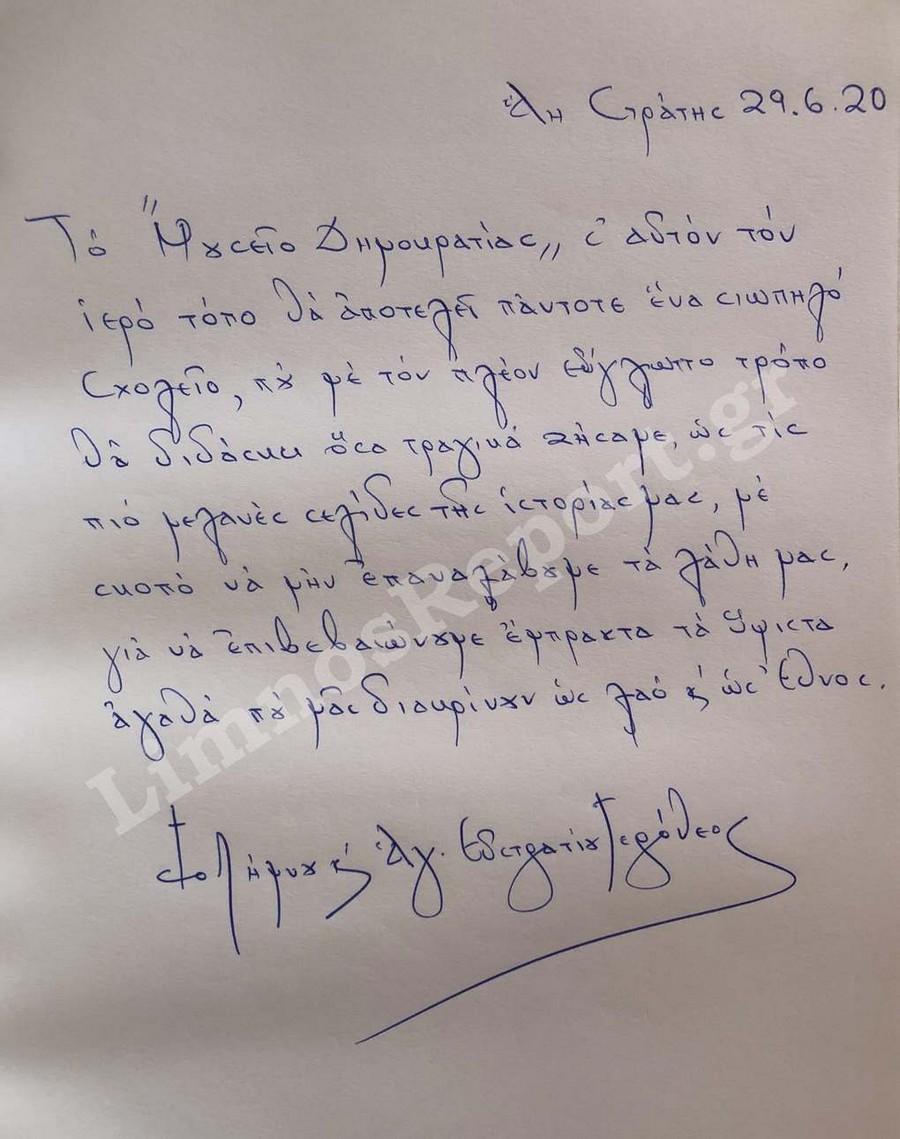 Ἁη Στράτης 29.6.20
Τό "Μȣσεῖο Δημοκρατίας„ σ' αὐτόν τόν
ἱερό τόπο θά ἀποτελεῖ πάντοτε ἕνα σιωπηλό
Σχολεῖο, πȣ μέ τόν πλέον εὔγλωττο τρόπο
θά διδάσκει ὅσα τραγικά ζήσαμε, ὡς τίς
πιό μελανές σελίδες τῆς ἱστορίας μας, μέ
σκοπό νά μήν ἐπαναλάβȣμε τά λάθη μας,
γιά νά ἐπιβεβαιώνȣμε ἔμπρακτα τά ὕψιστα
ἀγαθά πȣ μᾶς διακρίνȣν ὡς λαό ϗ ὡς Ἔθνος.
† ὁ Λήμνȣ ϗ Ἁγ. Εὐστρατίȣ Ἱερόθεος
LimnosReport.gr